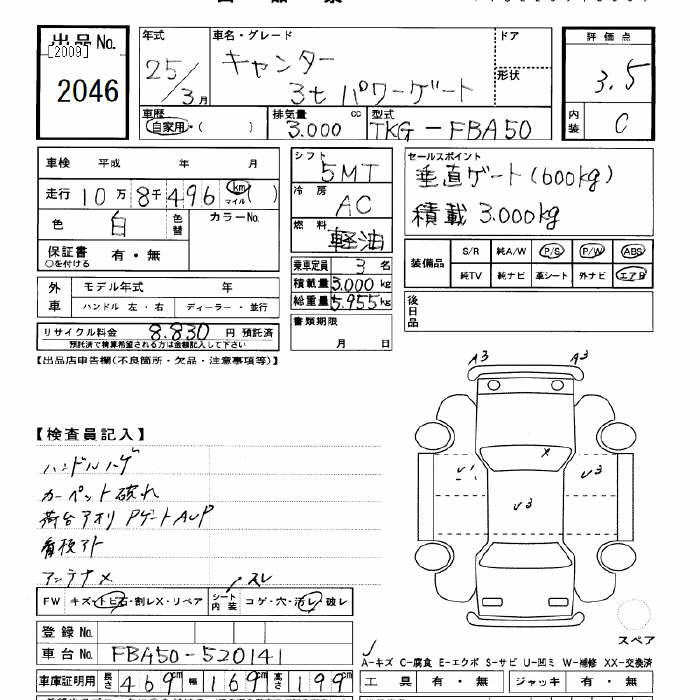 出品No.
[2009]
2046
年式
25/3月
車名・グレード
キャンター
3t パワーゲート
ドア
形状
評価点
3.5
内装
C
車歴
自家用・( )
排気量 cc
3.000
型式
TKG-FBA50
車検 平成 年 月
走行 10万8千496 km マイル ( )
色 白 色替 カラーNo.
保証書 ○を付ける 有・無
外車 モデル年式 年
ハンドル 左・右 ディーラー・並行
リサイクル料金 8.830 円 預託済
預託済で積算希望される方は金額記入して下さい
シフト 5MT
冷房 AC
燃料 軽油
乗車定員 3 名
積載量 3.000 kg
総重量 5.955 kg
書類期限
月 日
セールスポイント
垂直ゲート(600kg)
積載 3.000kg
装備品 S/R 純A/W P/S P/W ABS
純TV 純ナビ 革シート 外ナビ エアB
後日品
【出品店申告欄(不良箇所・欠品・注意事項等)】
【検査員記入】
ハンドルハゲ
カーペット破れ
荷台アオリ PゲートAUP
看板アト
アンテナ×
スレ
FW キズ・トビ石・割レX・リペア シート内装 コゲ・穴・汚レ・破レ
登録No.
車台No. FBA50-520141
車庫証明用 長さ 469cm 幅 169cm 高さ 199cm
A3 A3
x
U3
U3
スペア
A-キズ C-腐食 E-エクボ S-サビ U-凹ミ W-補修 XX-交換済
工具 有・無 ジャッキ 有・無